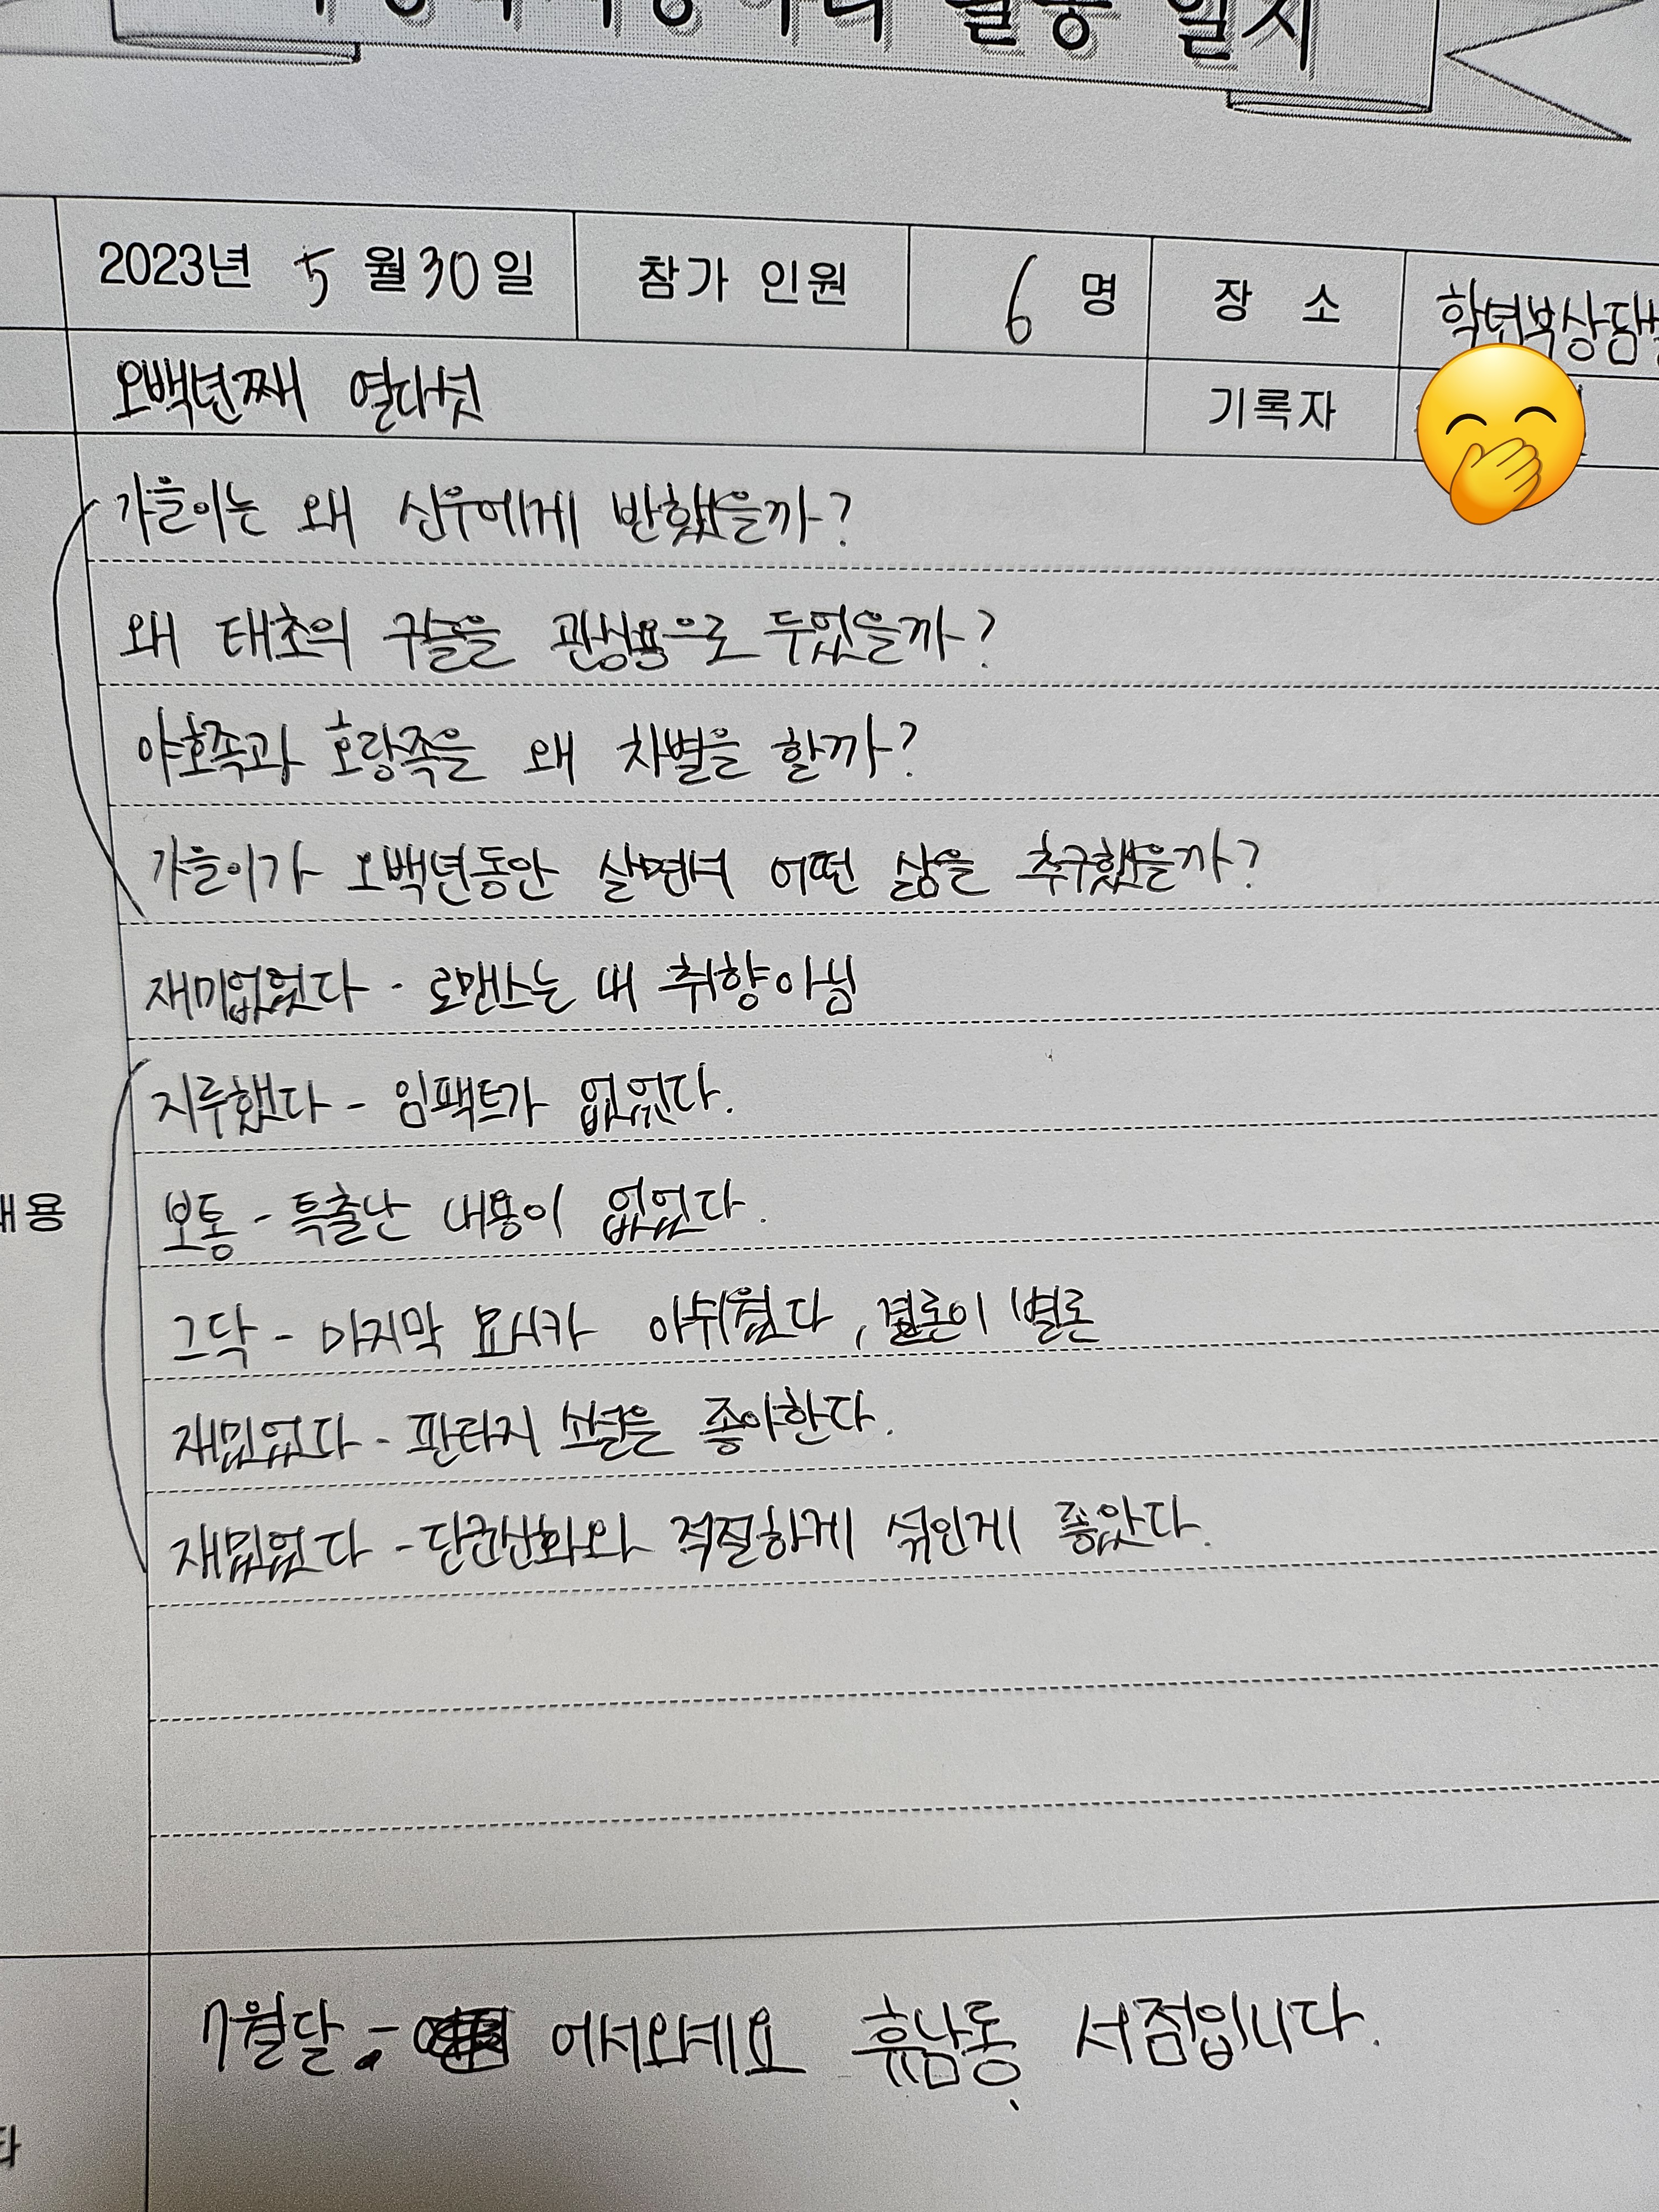 활동 일지
2023년 5월 30일 참가 인원 6 명 장 소 학년부상담
오백년째 열다섯 기록자
가을이는 왜 신우에게 반했을까?
왜 태초의 구슬을 관상용으로 두었을까?
야호족과 호랑족은 왜 차별을 할까?
가을이가 오백년동안 살면서 어떤 삶을 추구했을까?
재미없었다 - 로맨스는 내 취향아님
지루했다 - 임팩트가 없었다.
보통 - 특출난 내용이 없었다.
내용
그닥 - 마지막 요시카 아쉬웠다, 결론이 별론
재밌었다 - 판타지 소설을 좋아한다.
재밌었다 - 단군신화와 적절하게 섞인게 좋았다.
7월달 - 어서오세요 휴남동 서점입니다.
타